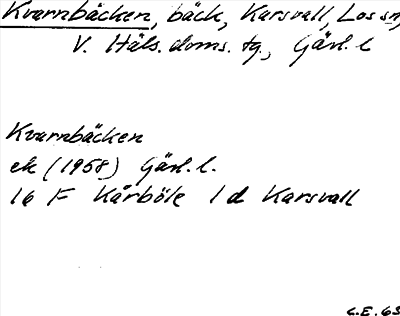 Kvarnbäcken, bäck, Karsvall, Los sn,
V. Häls. doms. tg., Gävl. l
Kvarnbäcken
ek (1958) Gävl. l.
16 F Kårböle 1 d Karsvall
C.E. 63